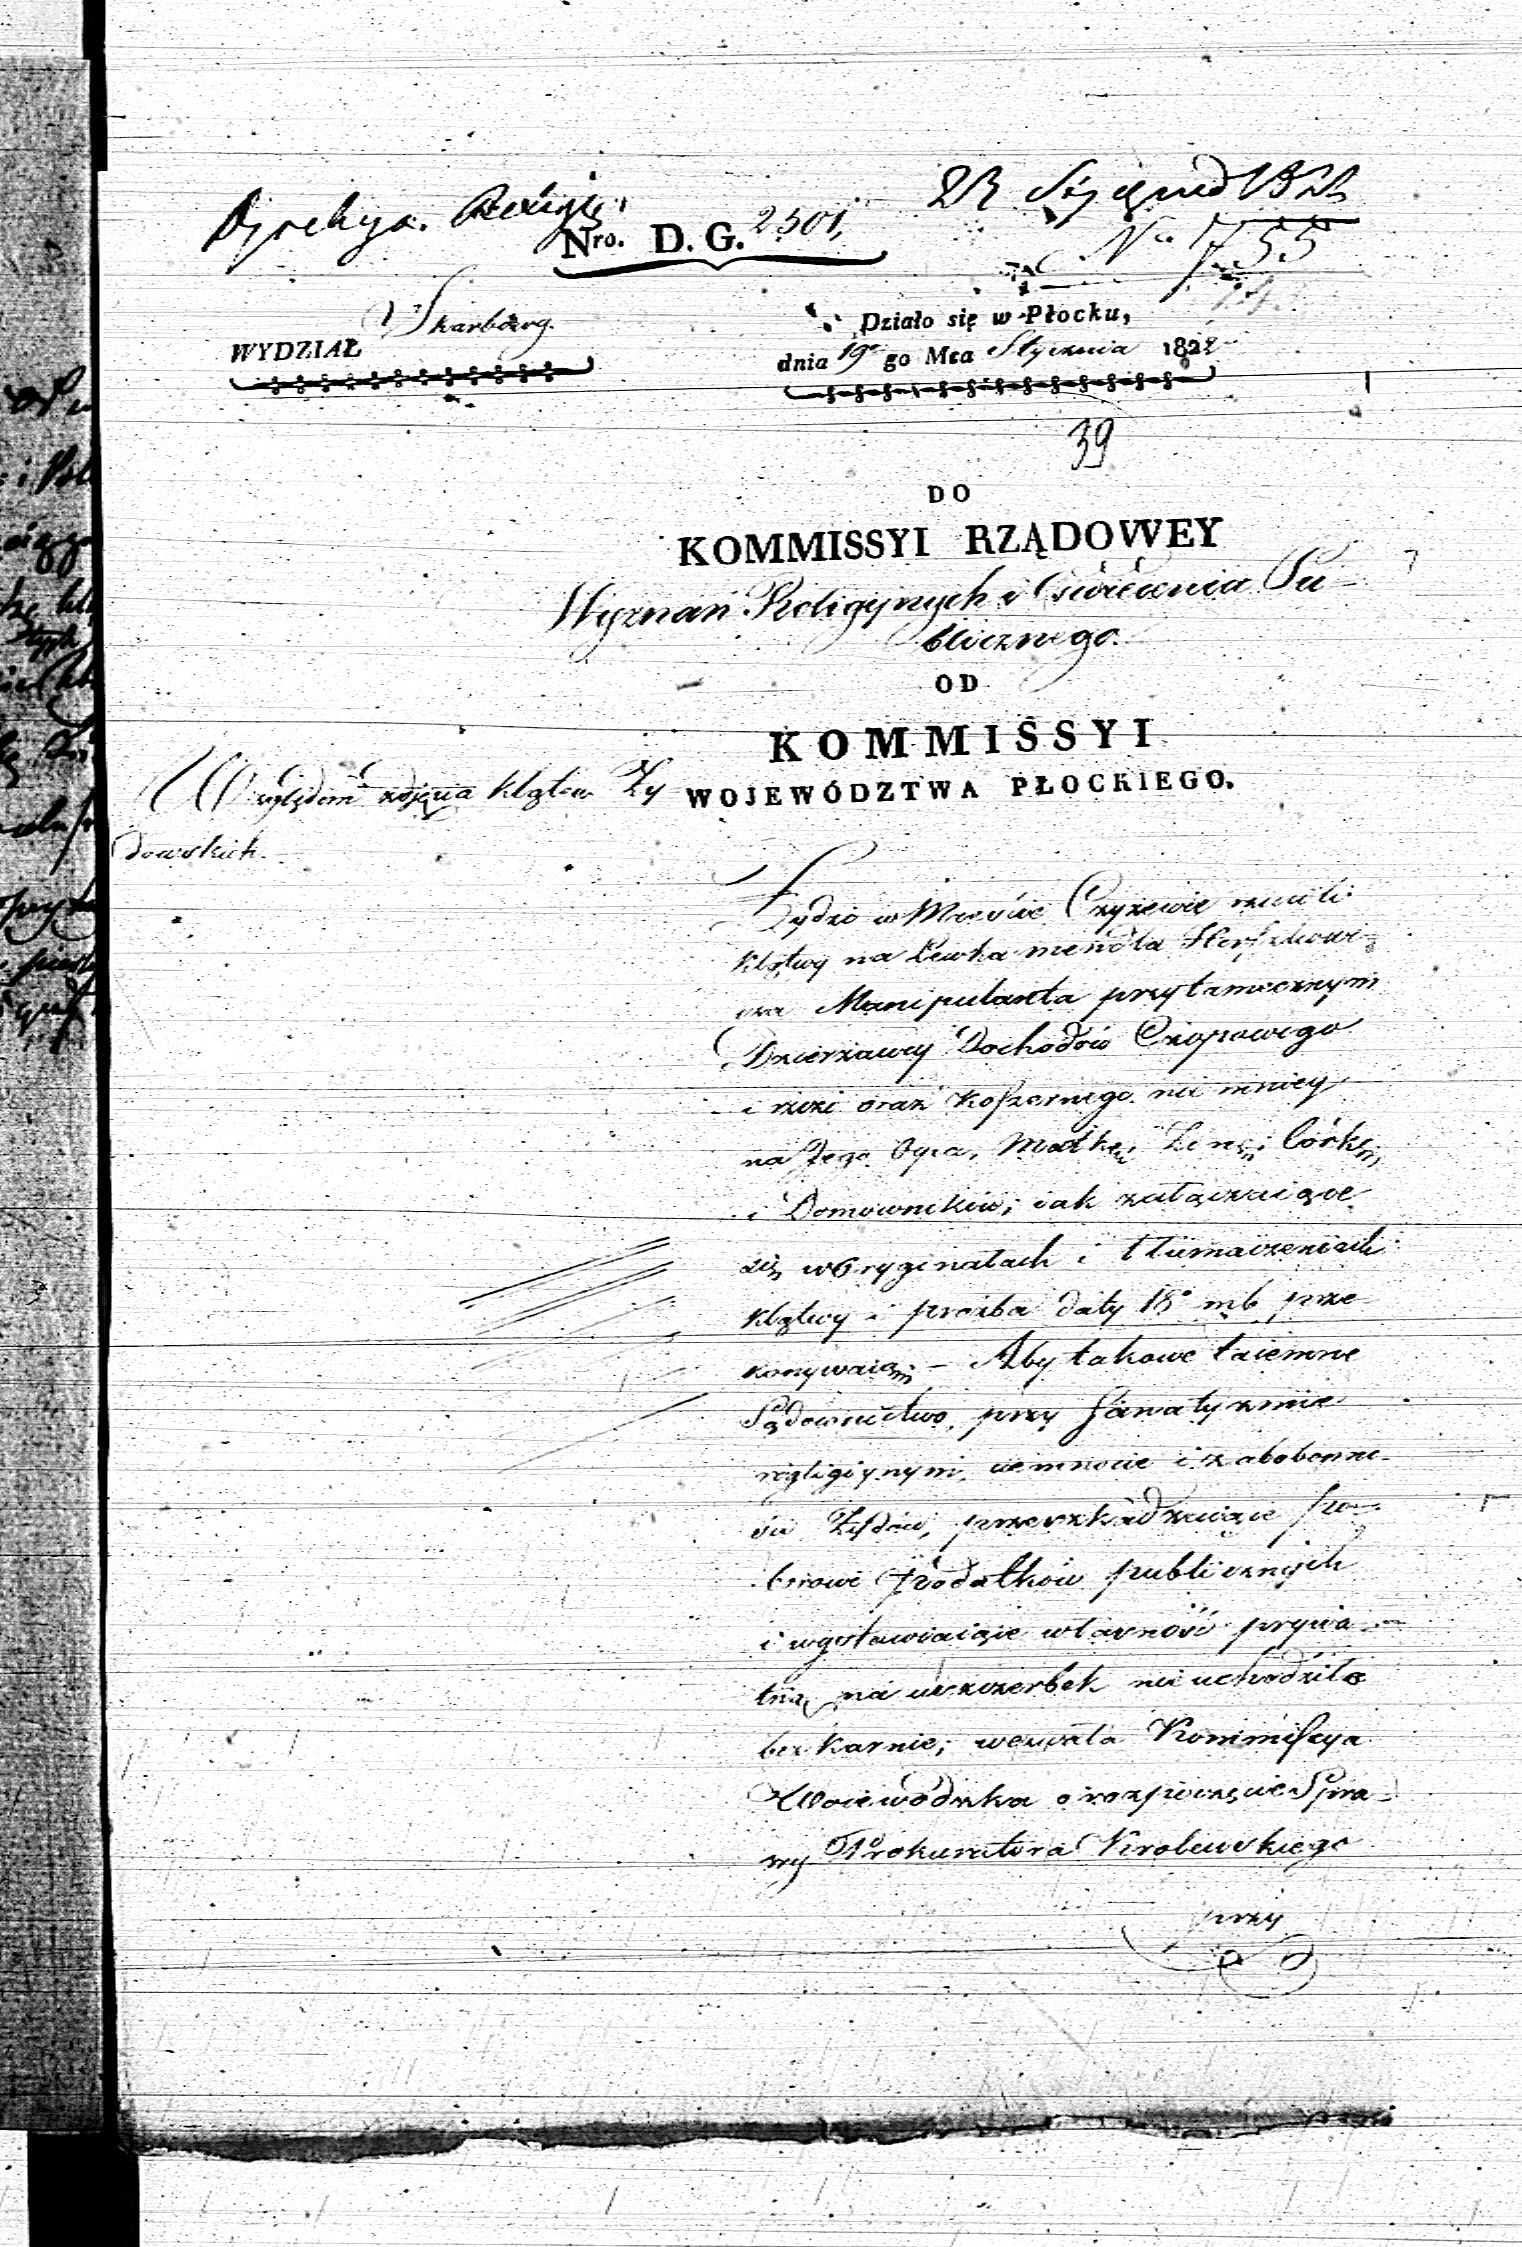 23 Stycznia 1822
Nro. D. G. 2501,
No 755
Skarbowy.
WYDZIAŁ
Działo się w Płocku,
dnia 19o go Mca Stycznia 1822
39
DO
KOMMISSYI RZĄDOWEY
Wyznań Religiynych i Oświecenia Pu-
blicznego.
OD
KOMMISSYI
WOJEWÓDZTWA PŁOCKIEGO.
Względem zdjęcia klątew Ży
dowskich.
Żydzi w Mieście Czyżewie rzucili
klątwy na Lewka Mendla Herszkowi-
cza Manipulanta przy tamecznym
Dzierżawcy Dochodów Czopowego
i rzezi oraz koszernego nie mniey
na Jego Oyca, Matkę, Żonę, Córkę,
i Domowników, iak załączaiące
się w Oryginałach i tłumaczeniach
klątwy i prożba daty 18o mb prze
konywaią; – Aby takowe taiemne
Sądownictwo, przy fanatyzmie
religiynym, ciemnocie i zabobonno-
ści Żydów, przeszkadzaiące po-
borowi podatków publicznych
i wystawiaiące własność prywa-
tną na uszczerbek nie uchodziło
bezkarnie; wezwała Kommissya
Woiewódzka o rozpoczęcie Spra-
wy Prokuratora Królewskiego
przy